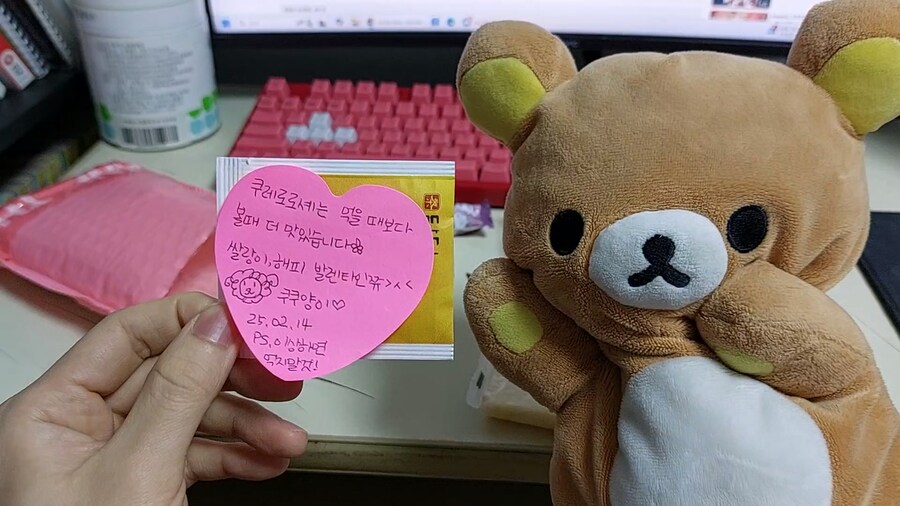 쿠레로로셰는 먹을 때보다
볼때 더 맛있습니다
쌀랑이, 해피 발렌타인쥬>.<
쿠쿠양이♡
25.02.14
PS. 이상하면
먹지말것!